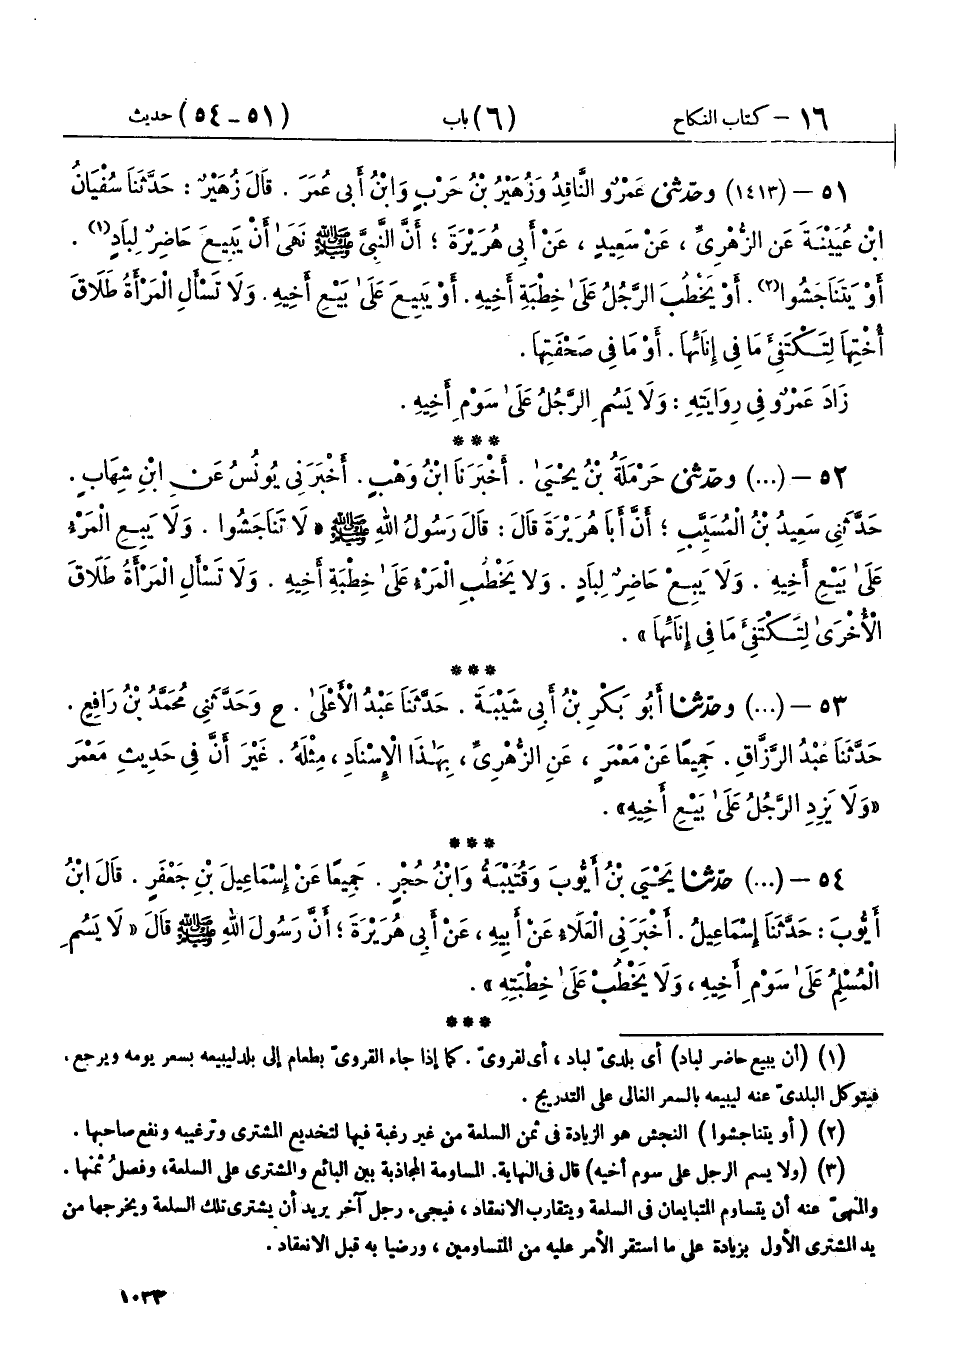 ١٦ – كتاب النكاح (٦) باب (٥١ – ٥٤) حديث
٥١ – (١٤١٣) وحدثنى عَمْرٌو النَّاقِدُ وَزُهَيْرُ بْنُ حَرْبٍ وَابْنُ أَبِى عُمَرَ . قَالَ زُهَيْرٌ : حَدَّثَنَا سُفْيَانُ
ابْنُ عُيَيْنَةَ عَنِ الزُّهْرِىِّ ، عَنْ سَعِيدٍ ، عَنْ أَبِى هُرَيْرَةَ ؛ أَنَّ النَّبِىَّ ﷺ نَهَىٰ أَنْ يَبِيعَ حَاضِرٌ لِبَادٍ(١) .
أَوْ يَتَنَاجَشُوا(٢) . أَوْ يَخْطُبَ الرَّجُلُ عَلَىٰ خِطْبَةِ أَخِيهِ . أَوْ يَبِيعَ عَلَىٰ بَيْعِ أَخِيهِ . وَلَا تَسْأَلِ الْمَرْأَةُ طَلَاقَ
أُخْتِهَا لِتَكْتَفِئَ مَا فِى إِنَائِهَا . أَوْ مَا فِى صَحْفَتِهَا .
زَادَ عَمْرٌو فِى رِوَايَتِهِ : وَلَا يَسُمِ الرَّجُلُ عَلَىٰ سَوْمِ أَخِيهِ .
***
٥٢ – (...) وحدثنى حَرْمَلَةُ بْنُ يَحْيَىٰ . أَخْبَرَنَا ابْنُ وَهْبٍ . أَخْبَرَنِى يُونُسُ عَنِ ابْنِ شِهَابٍ .
حَدَّثَنِى سَعِيدُ بْنُ الْمُسَيَّبِ ؛ أَنَّ أَبَا هُرَيْرَةَ قَالَ : قَالَ رَسُولُ اللهِ ﷺ « لَا تَنَاجَشُوا . وَلَا يَبِعِ الْمَرْءُ
عَلَىٰ بَيْعِ أَخِيهِ . وَلَا يَبِعْ حَاضِرٌ لِبَادٍ . وَلَا يَخْطُبِ الْمَرْءُ عَلَىٰ خِطْبَةِ أَخِيهِ . وَلَا تَسْأَلِ الْمَرْأَةُ طَلَاقَ
الْأُخْرَىٰ لِتَكْتَفِئَ مَا فِى إِنَائِهَا » .
***
٥٣ – (...) وحدثنا أَبُو بَكْرِ بْنُ أَبِى شَيْبَةَ . حَدَّثَنَا عَبْدُ الْأَعْلَىٰ . ح وَحَدَّثَنِى مُحَمَّدُ بْنُ رَافِعٍ .
حَدَّثَنَا عَبْدُ الرَّزَّاقِ . جَمِيعًا عَنْ مَعْمَرٍ ، عَنِ الزُّهْرِىِّ ، بِهَٰذَا الْإِسْنَادِ ، مِثْلَهُ . غَيْرَ أَنَّ فِى حَدِيثِ مَعْمَرٍ
«وَلَا يَزِدِ الرَّجُلُ عَلَىٰ بَيْعِ أَخِيهِ» .
***
٥٤ – (...) حدثنا يَحْيَى بْنُ أَيُّوبَ وَقُتَيْبَةُ وَابْنُ حُجْرٍ . جَمِيعًا عَنْ إِسْمَاعِيلَ بْنِ جَعْفَرٍ . قَالَ ابْنُ
أَيُّوبَ : حَدَّثَنَا إِسْمَاعِيلُ . أَخْبَرَنِى الْعَلَاءُ عَنْ أَبِيهِ ، عَنْ أَبِى هُرَيْرَةَ ؛ أَنَّ رَسُولَ اللهِ ﷺ قَالَ « لَا يَسُمِ
الْمُسْلِمُ عَلَىٰ سَوْمِ أَخِيهِ ، وَلَا يَخْطُبْ عَلَىٰ خِطْبَتِهِ » .
***
(١) (أن يبيع حاضر لباد) أى بلدىّ لباد ، أى لقروىّ . كما إذا جاء القروىّ بطعام إلى بلد ليبيعه بسعر يومه ويرجع ،
فيتوكل البلدىّ عنه ليبيعه بالسعر الغالى على التدريج .
(٢) (أو يتناجشوا) النجش هو الزيادة فى ثمن السلعة من غير رغبة فيها لتخديع المشترى وترغيبه ونفع صاحبها .
(٣) (ولا يسم الرجل على سوم أخيه) قال فى النهاية . المساومة المجاذبة بين البائع والمشترى على السلعة، وفصلُ ثمنها .
والمنهىّ عنه أن يتساوم المتبايعان فى السلعة ويتقارب الانعقاد ، فيجىء رجل آخر يريد أن يشترى تلك السلعة ويخرجها من
يد المشترى الأول بزيادة على ما استقر الأمر عليه من المتساومين ، ورضيا به قبل الانعقاد .
١٠٣٣